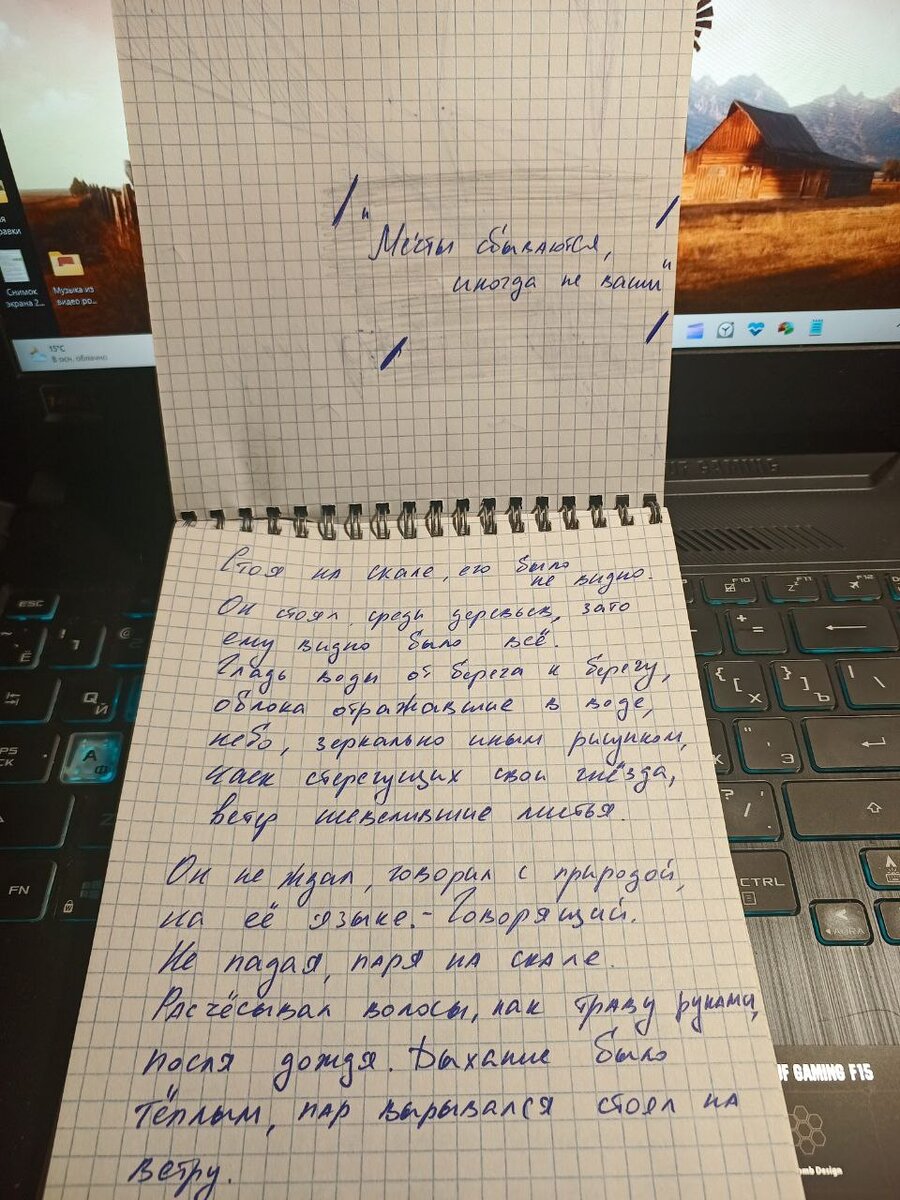 Снимок
экрана 2...
Музыка из
видео ро...
15°C
В осн. облачно
"Мечты сбываются,
иногда не ваши"
Стоя на скале, его было
не видно.
Он стоял среди деревьев, зато
ему видно было всё.
Гладь воды от берега к берегу,
облака отражавшие в воде,
небо, зеркально иным рисунком,
чаек стерегущих свои гнёзда,
ветер шевелившие листья.
Он не ждал, говорил с природой,
на её языке. - Говорящий.
Не падая, паря на скале.
Расчёсывал волосы, как траву руками,
после дождя. Дыхание было
тёплым, пар вырывался стоял на
ветру.
ESC
F10
F11
F12
Q
Й
A
Ф
FN
CTRL
AURA
F GAMING F15
mb Design